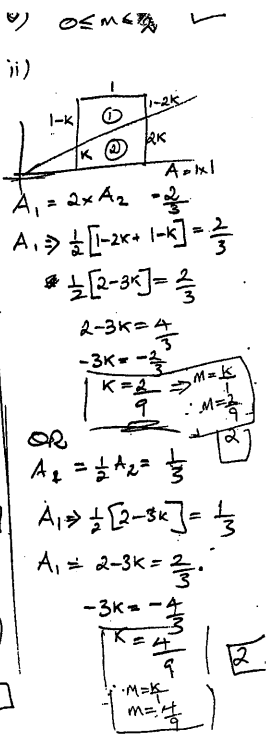 0 ≤ m ≤
ii)
1
1-K ① 1-2K
K ② 2K
A = 1×1
A₁ = 2×A₂ = 2/3
A₁ ⇒ 1/2[1-2K+1-K] = 2/3
1/2[2-3K] = 2/3
2-3K = 4/3
-3K = -2/3
K = 2/9 ⇒ M = K/1
M = 2/9
2
OR
A₂ = 1/2 A₂ = 1/3
A₁ ⇒ 1/2[2-3K] = 1/3
A₁ = 2-3K = 2/3.
-3K = -4/3
K = 4/9
2
∴ M = K/1
M = 4/9